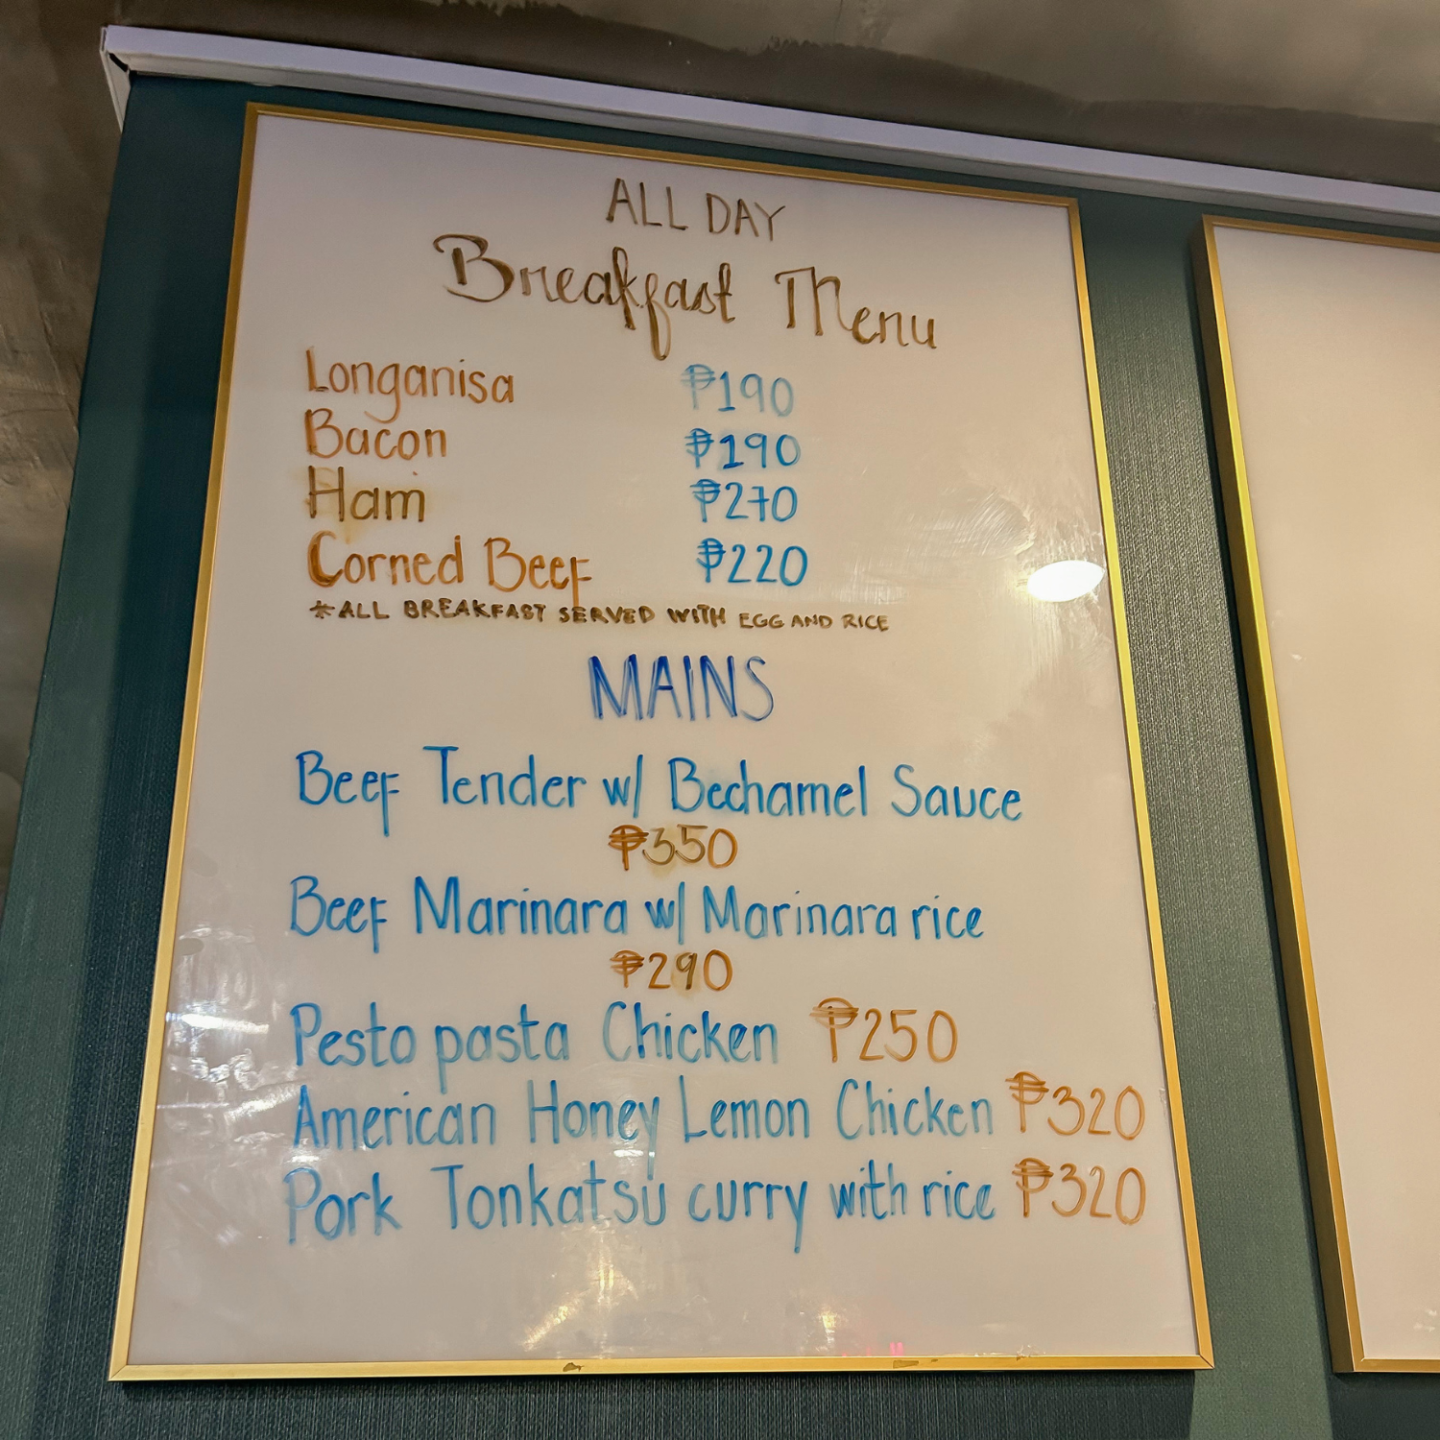 ALL DAY
Breakfast Menu
Longanisa ₱190
Bacon ₱190
Ham ₱270
Corned Beef ₱220
*ALL BREAKFAST SERVED WITH EGG AND RICE
MAINS
Beef Tender w/ Bechamel Sauce
₱350
Beef Marinara w/ Marinara rice
₱290
Pesto pasta Chicken ₱250
American Honey Lemon Chicken ₱320
Pork Tonkatsu curry with rice ₱320